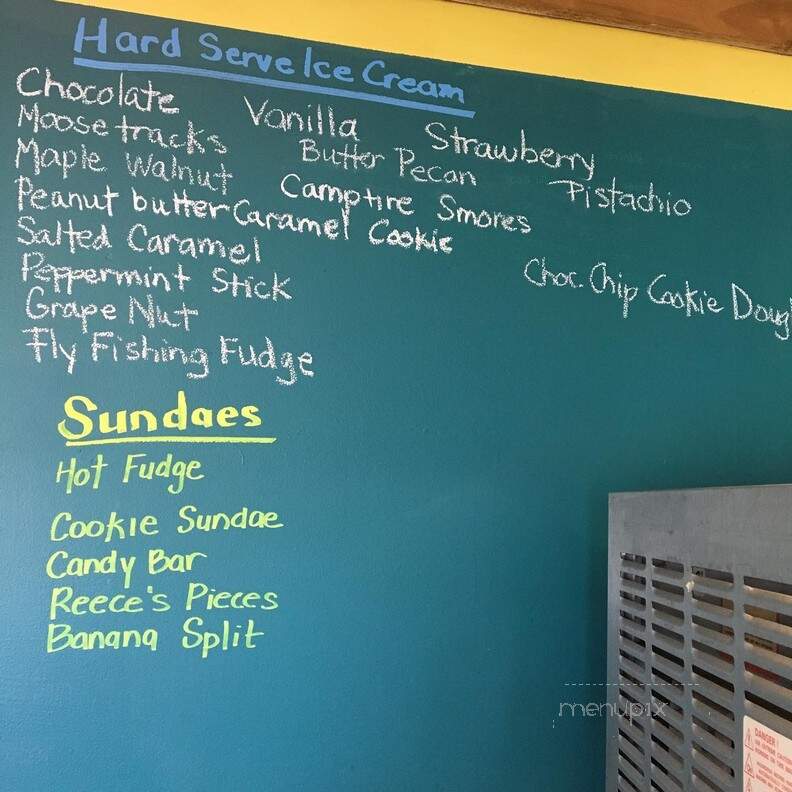 Hard Serve Ice Cream
Chocolate Vanilla Strawberry
Moosetracks Butter Pecan Pistachio
Maple Walnut Campfire Smores
Peanut butter Caramel Cookie
Salted Caramel
Peppermint Stick Choc. Chip Cookie Doug
Grape Nut
Fly Fishing Fudge
Sundaes
Hot Fudge
Cookie Sundae
Candy Bar
Reece's Pieces
Banana Split
menupix
DANGER!